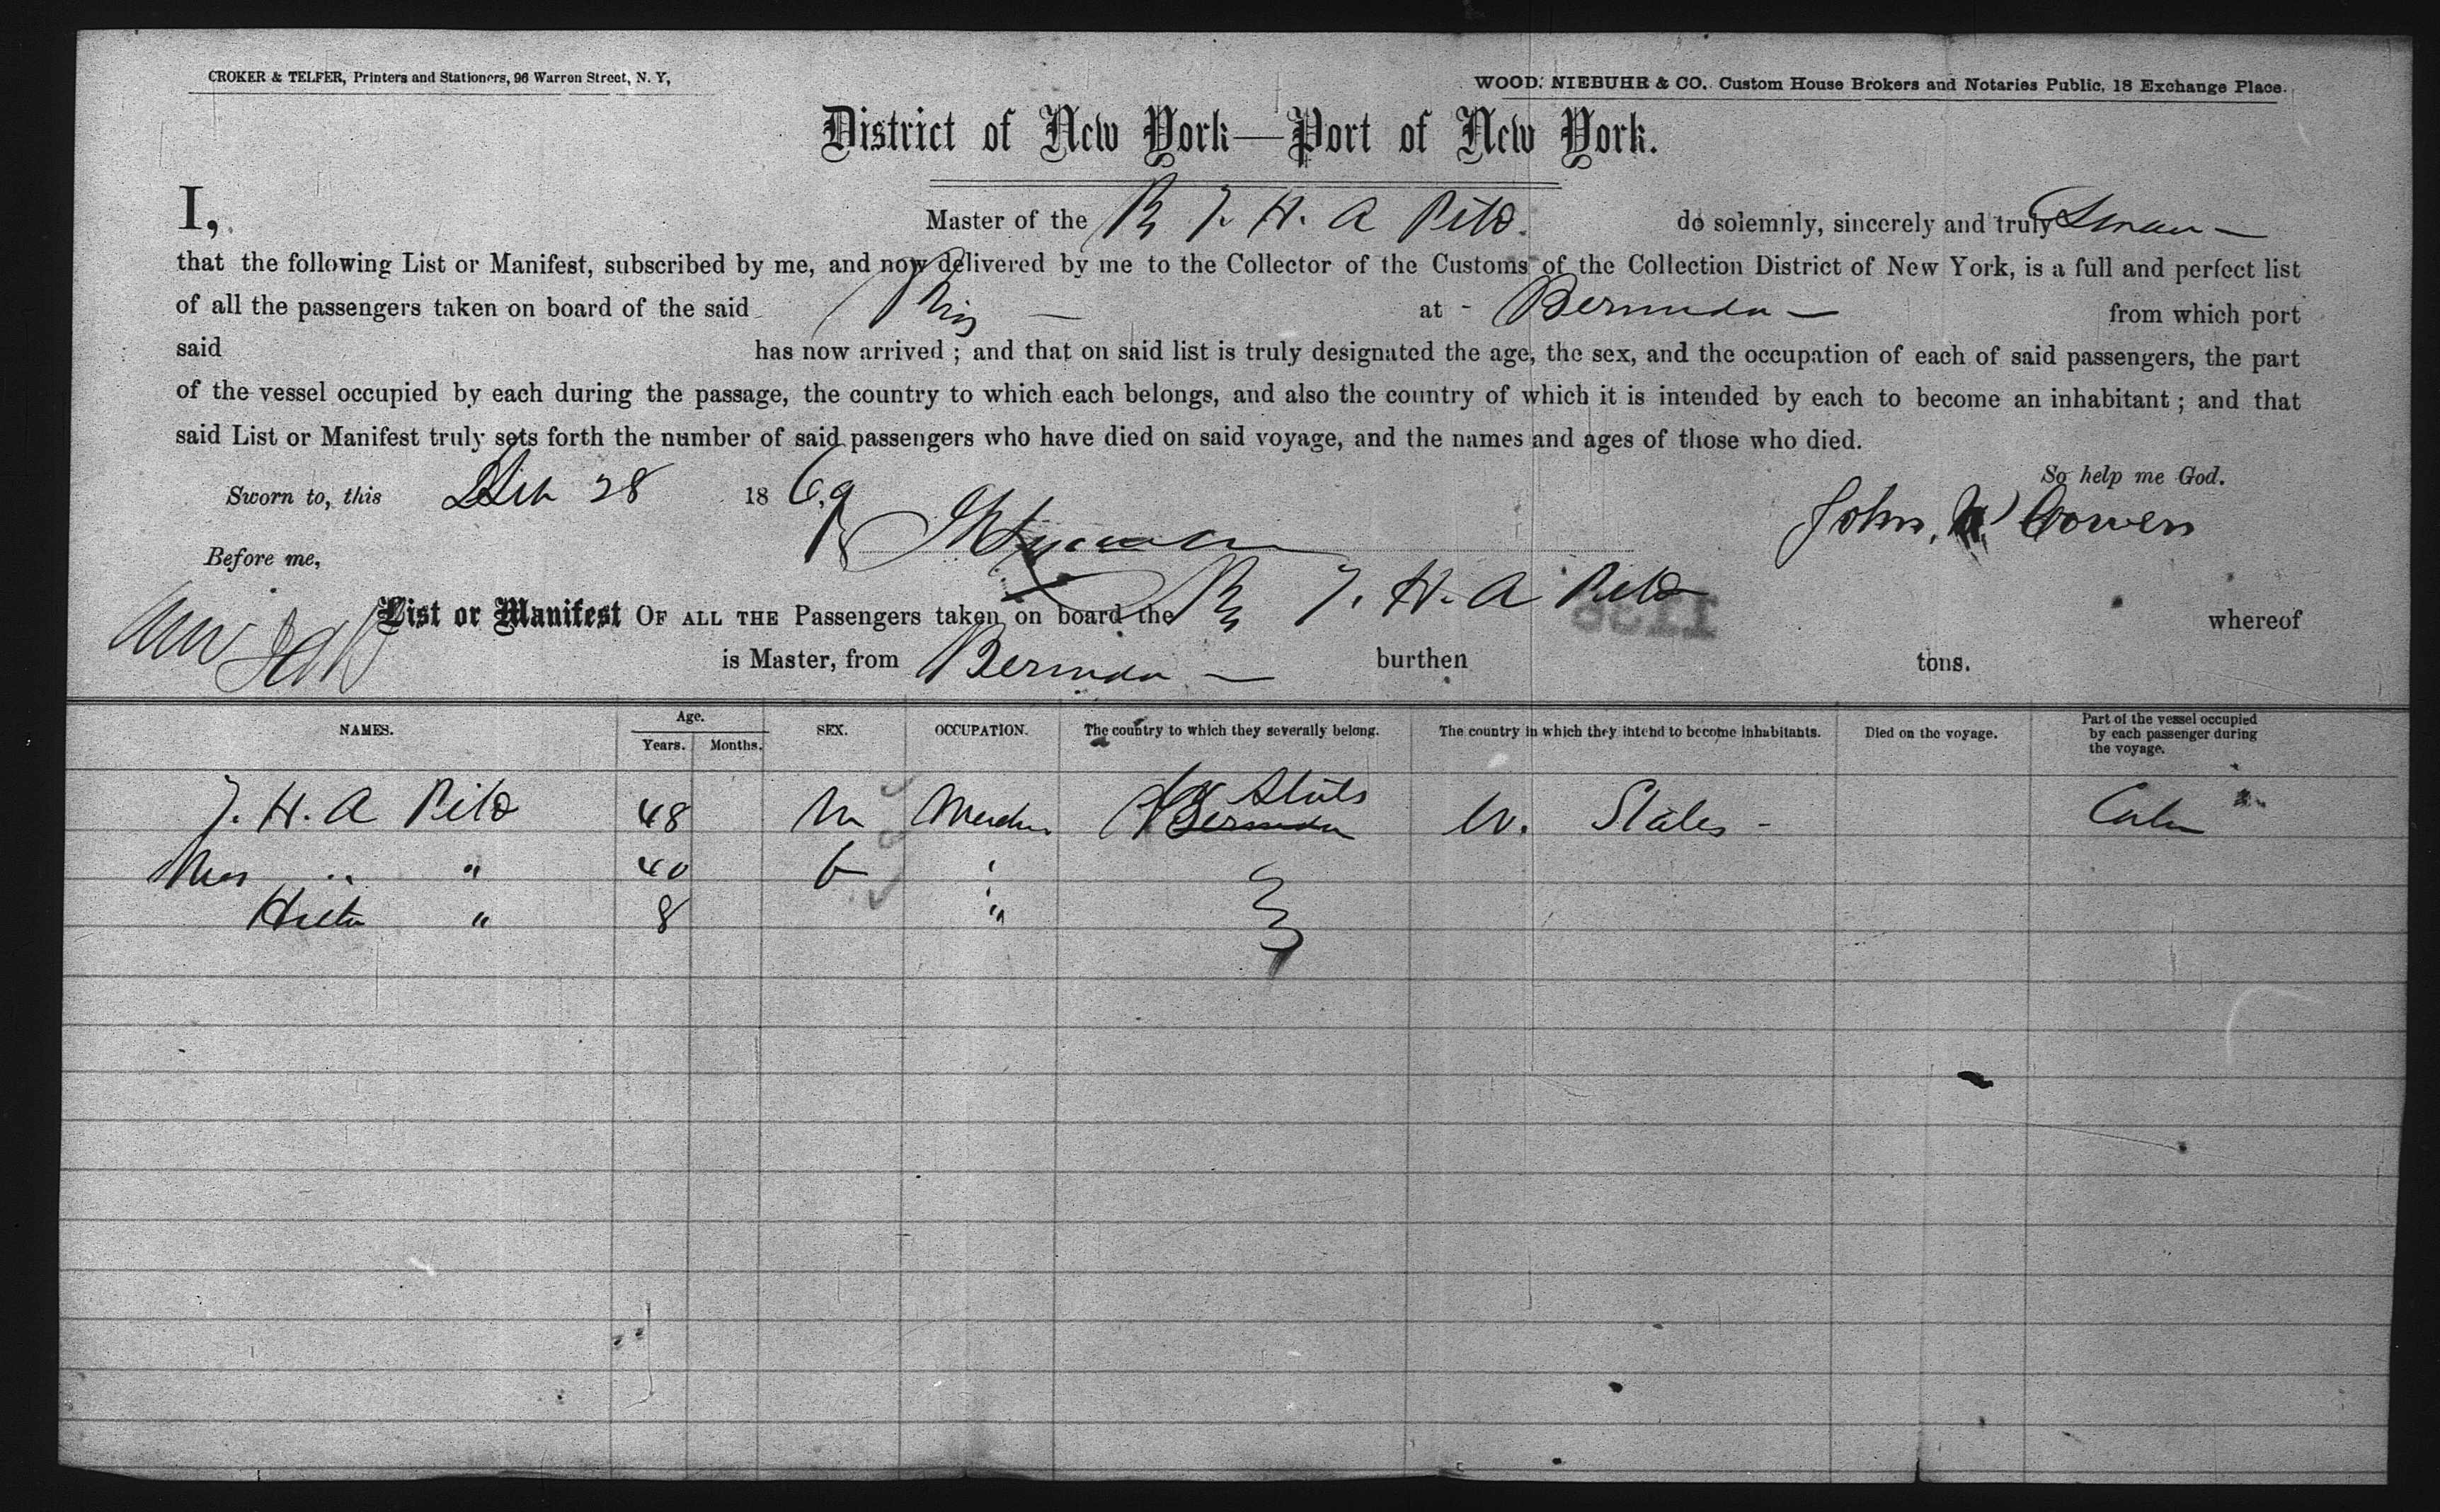 CROKER & TELFER, Printers and Stationers, 96 Warren Street, N. Y,
WOOD. NIEBUHR & CO. Custom House Brokers and Notaries Public, 18 Exchange Place.
District of New York—Port of New York.
I, Master of the T. H. A Pitt do solemnly, sincerely and truly Swear —
that the following List or Manifest, subscribed by me, and now delivered by me to the Collector of the Customs of the Collection District of New York, is a full and perfect list
of all the passengers taken on board of the said Brig — at - Bermuda — from which port
said has now arrived ; and that on said list is truly designated the age, the sex, and the occupation of each of said passengers, the part
of the vessel occupied by each during the passage, the country to which each belongs, and also the country of which it is intended by each to become an inhabitant ; and that
said List or Manifest truly sets forth the number of said passengers who have died on said voyage, and the names and ages of those who died.
So help me God.
Sworn to, this 28 1869
John W Cowen
Before me,
List or Manifest OF ALL THE Passengers taken on board the T. H. A Pitt whereof
is Master, from Bermuda — burthen tons.
NAMES. Age. Years. Months. SEX. OCCUPATION. The country to which they severally belong. The country in which they intend to become inhabitants. Died on the voyage. Part of the vessel occupied by each passenger during the voyage.
T. H. A Pitt 48 M U States Bermuda U. States -
Mrs " " 40 f "
" 8 "